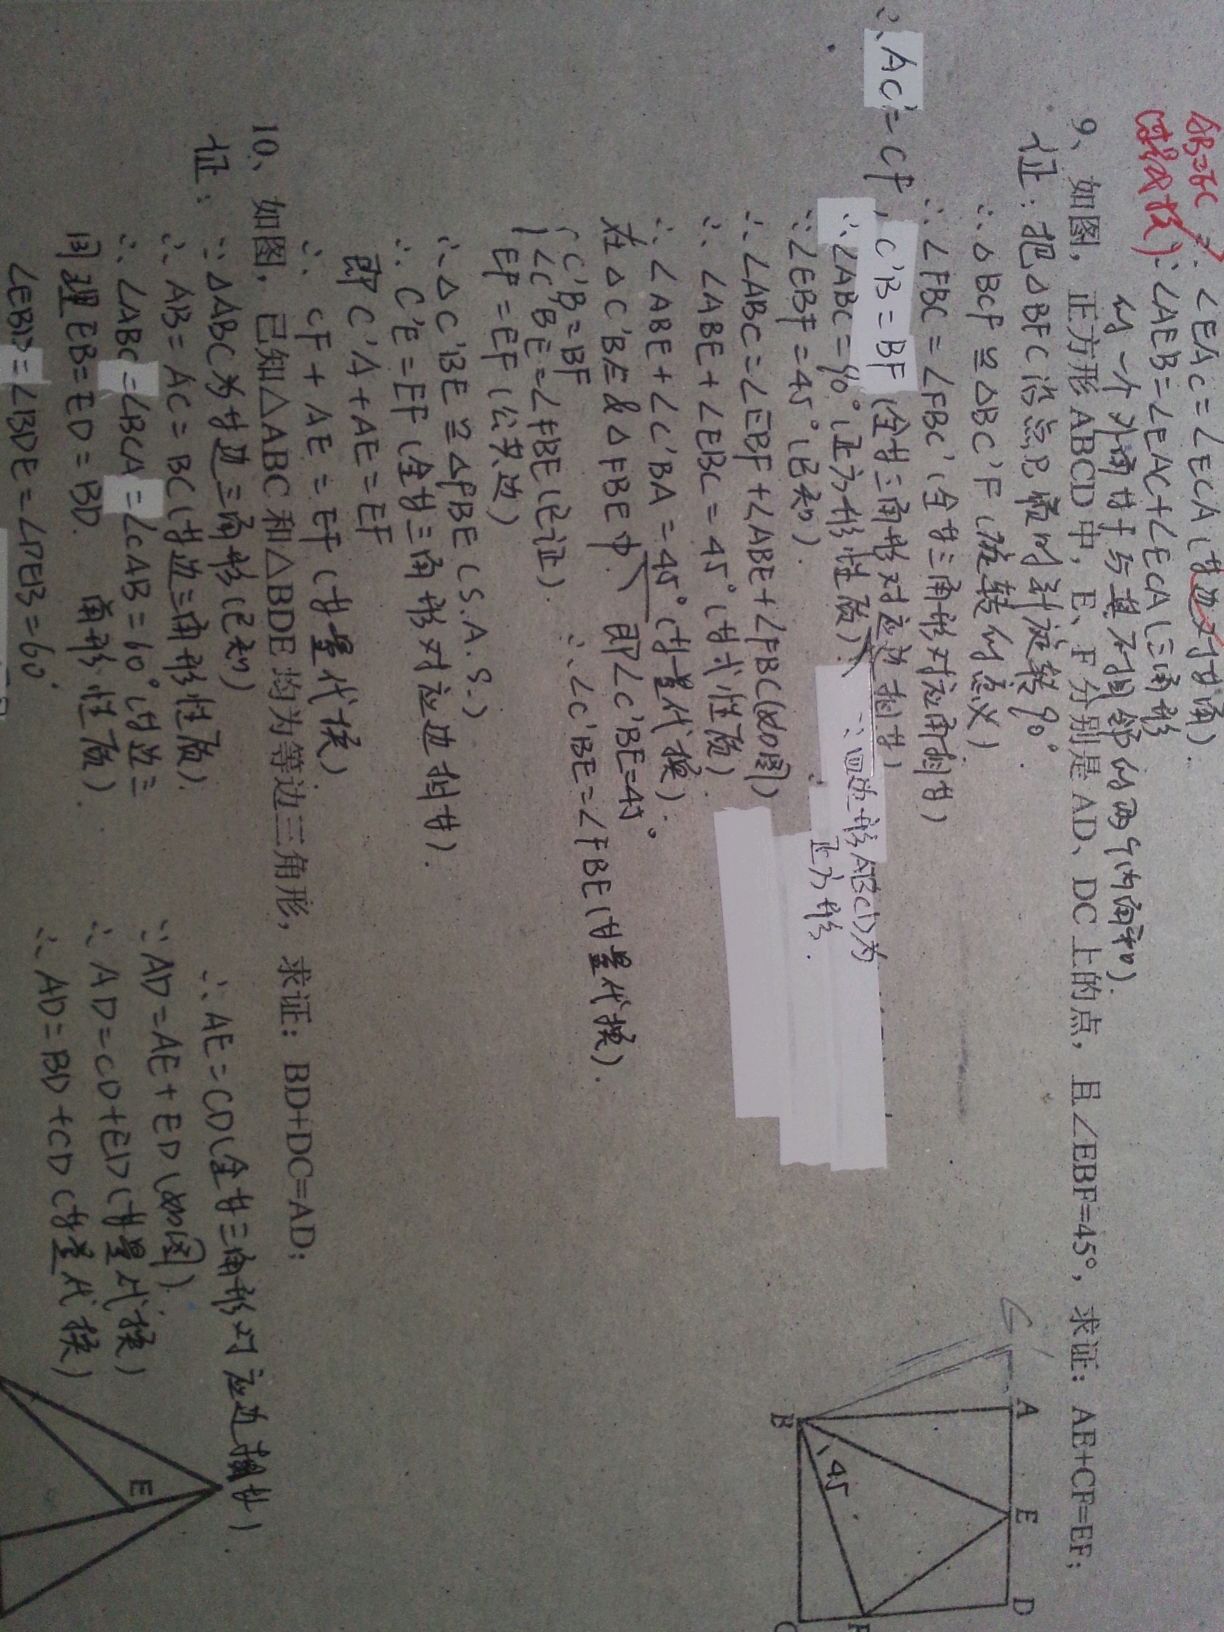 ∴∠EAC=∠ECA(甘边对甘角).
AB=EC
∴∠AEB=∠EAC+∠ECA(三角形
的一个外角甘于与其不相邻的两个内角和).
9、如图,正方形ABCD中,E、F分别是AD、DC上的点,且∠EBF=45°,求证:AE+CF=EF;
证:把△BFC沿点B顺时针旋转90°
∴△BCF≌△BC'F(旋转的意义)
∴∠FBC=∠FBC'(全甘三角形对应角相甘)
∴AC'=CF,C'B=BF(全甘三角形对应边相甘)
∵四边形ABCD为
正方形.
∴∠ABC=90°(正方形性质)
∵∠EBF=45°(已知).
∴∠ABC=∠EBF+∠ABE+∠FBC(如图)
∴∠ABE+∠EBC=45°(甘式性质)
∴∠ABE+∠C'BA=45°(甘量代换)
即∠C'BE=45°
在△C'BE&△FBE中
∴∠C'BE=∠FBE(甘量代换).
C'B=BF
∠C'BE=∠FBE(已证).
EF=EF(公共边)
∴△C'BE≌△FBE(S.A.S.)
∴C'E=EF(全甘三角形对应边相甘).
即C'A+AE=EF
∴CF+AE=EF(甘量代换)
10、如图,已知△ABC和△BDE均为等边三角形,求证:BD+DC=AD;
证:∵△ABC为甘边三角形(已知)
∴AB=AC=BC(甘边三角形性质).
∴∠ABC=∠BCA=∠CAB=60°(甘边三
角形性质)
同理EB=ED=BD
∠EBD=∠BDE=∠DEB=60°
∴AE=CD(全甘三角形对应边相甘)
∵AD=AE+ED(如图).
∴AD=CD+ED(甘量代换)
∴AD=BD+CD(甘量代换)
A
E
D
B
45°
F
E